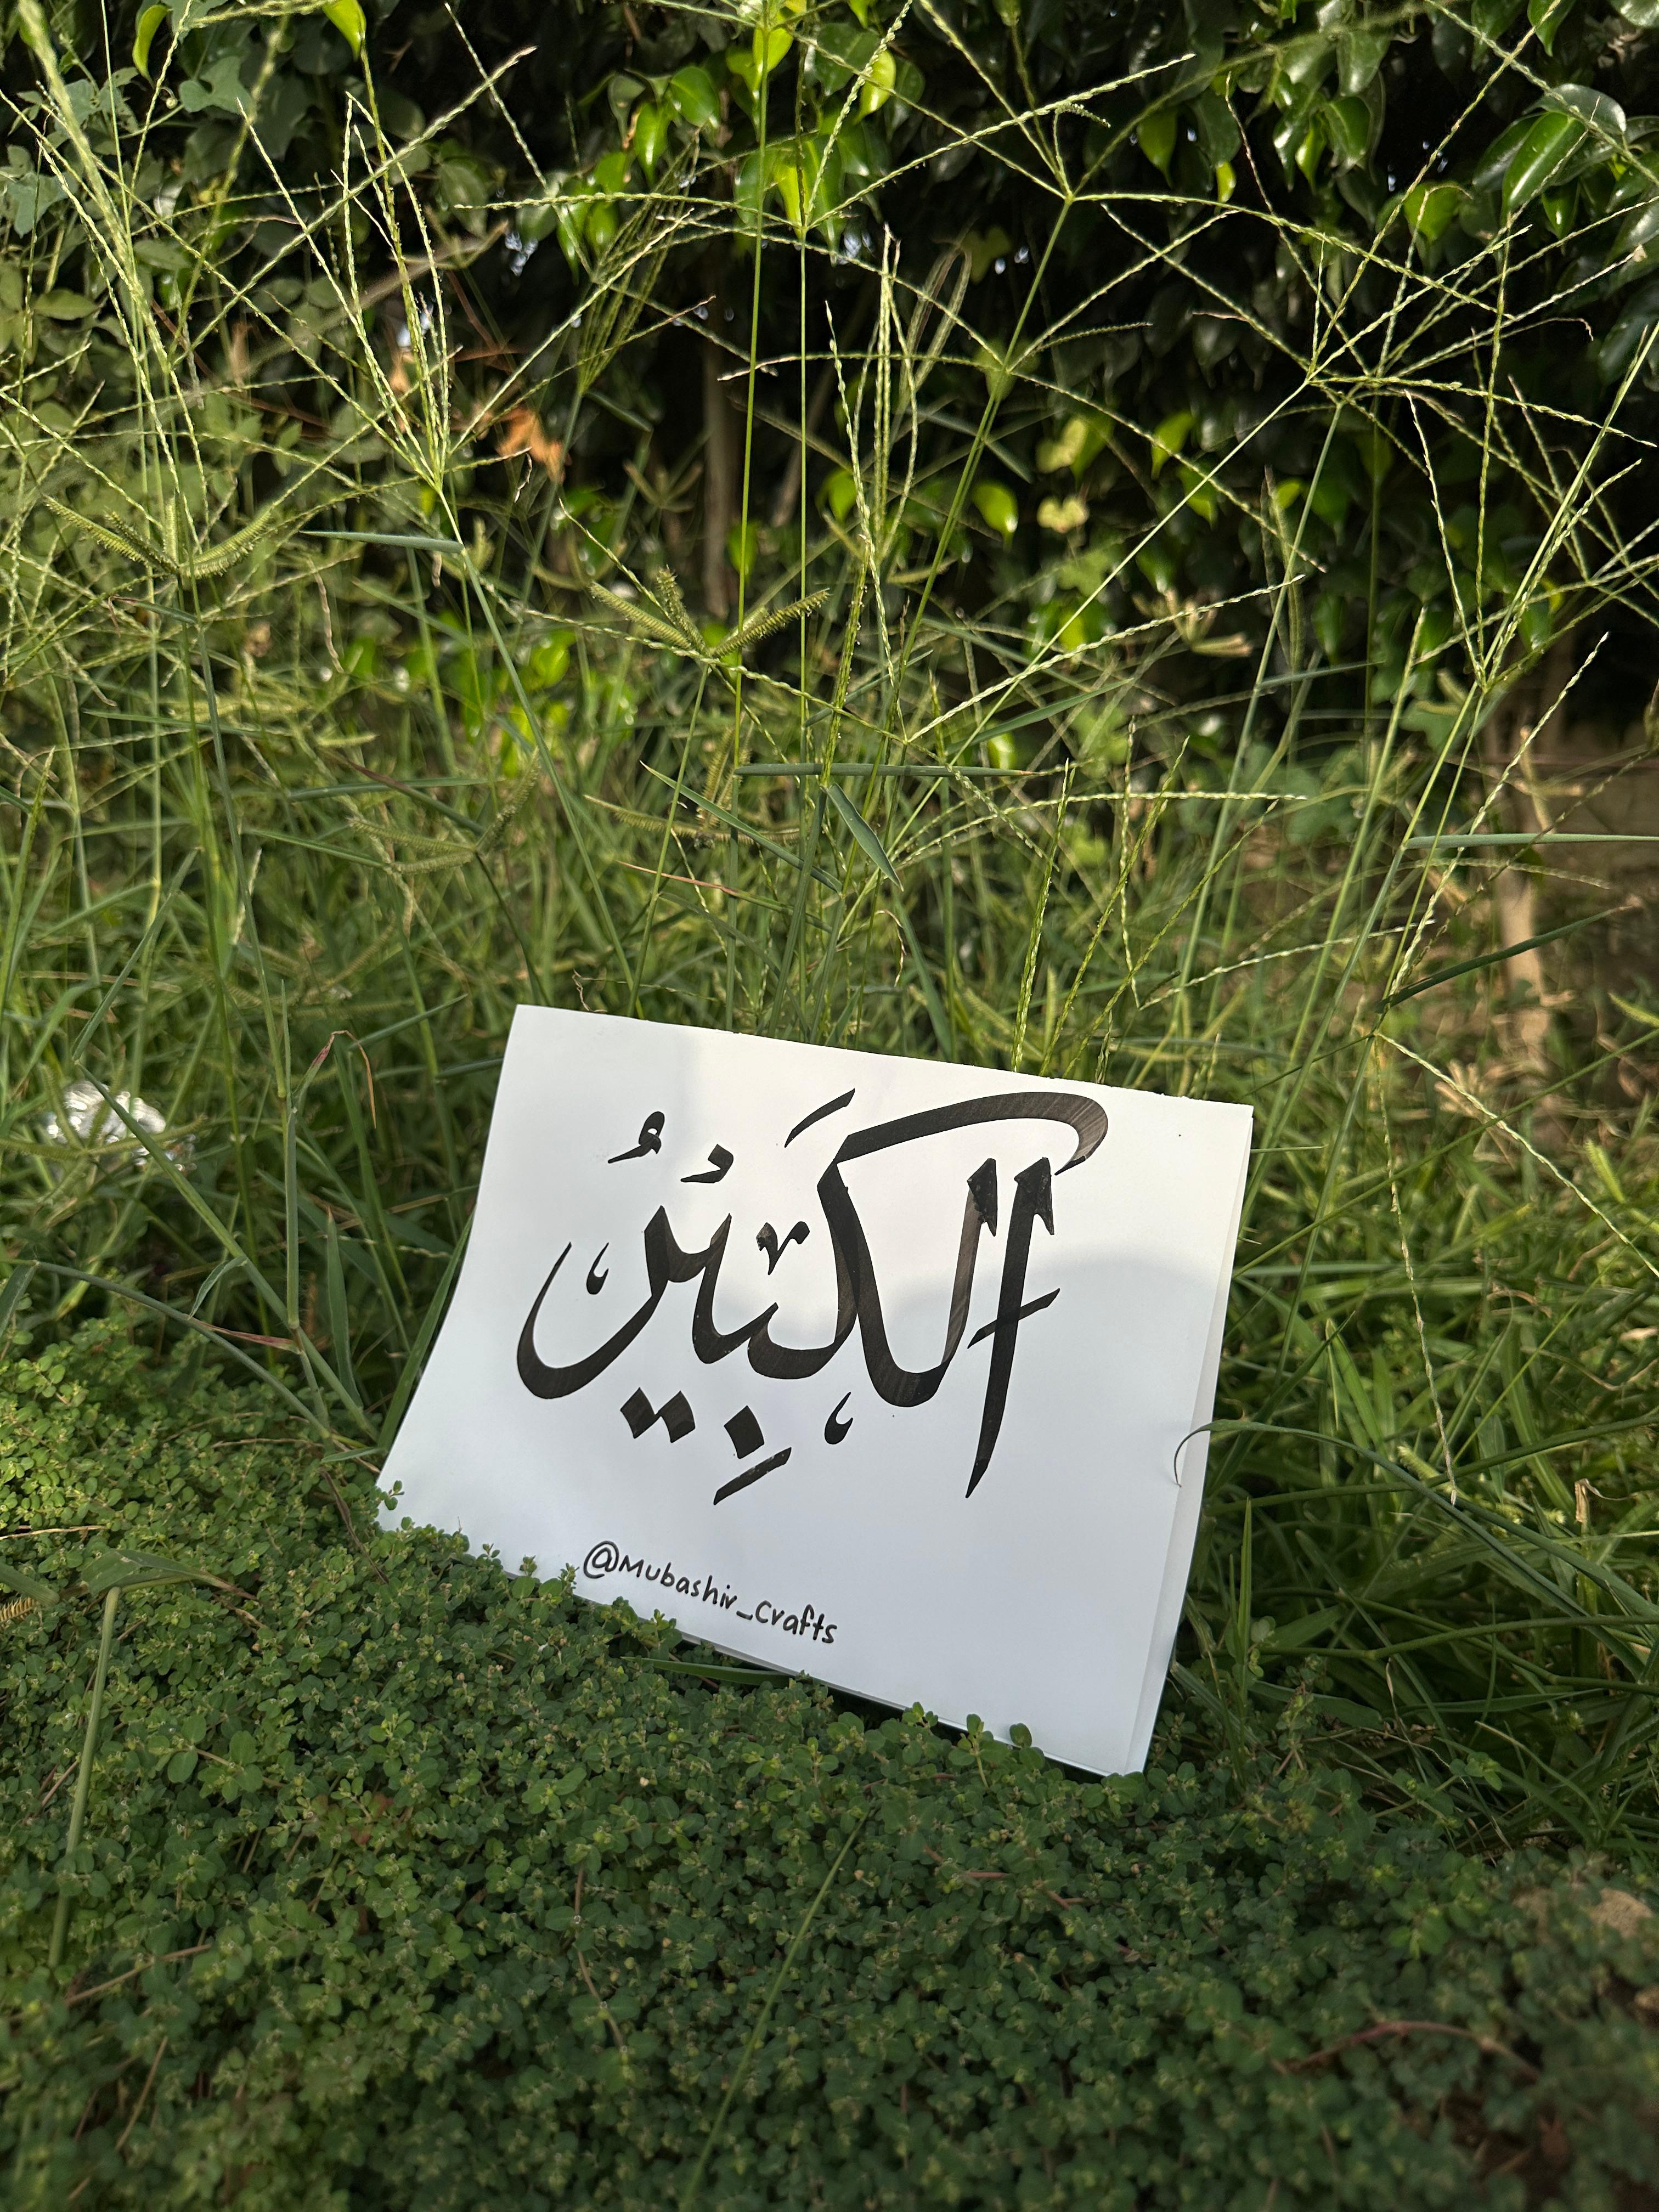 الكَبِيْرُ
@Mubashir_Crafts